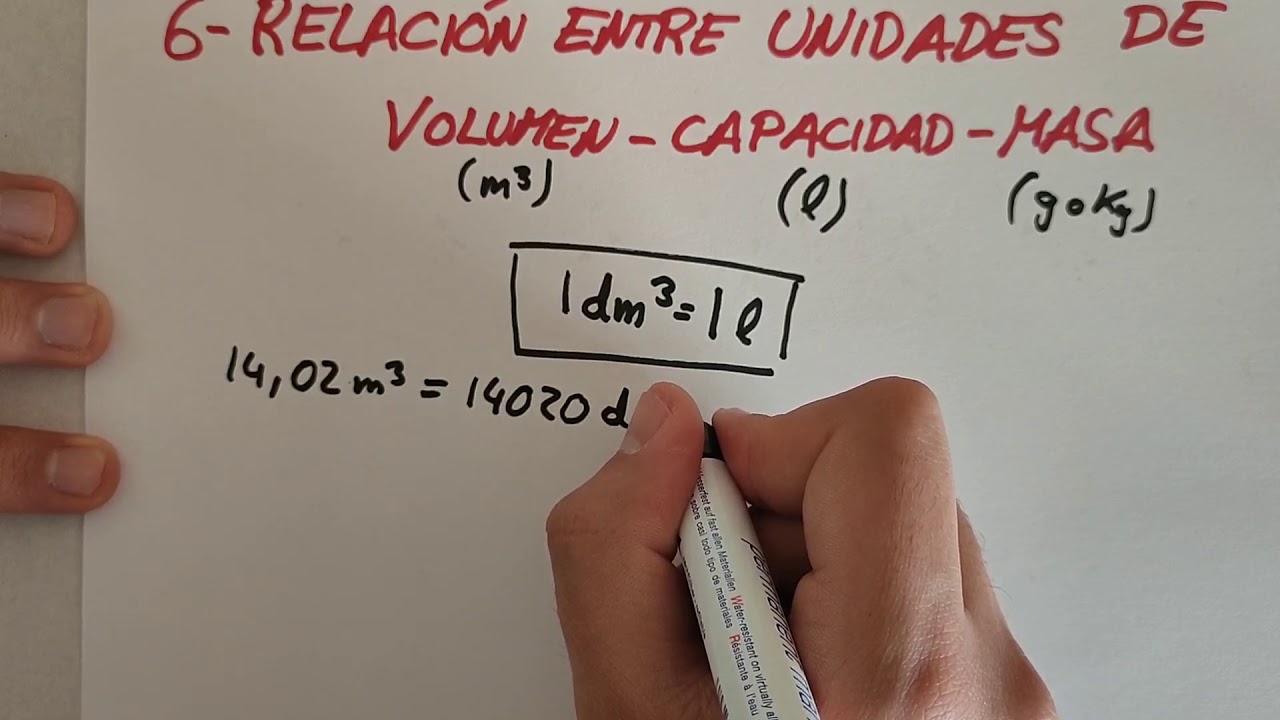 6- RELACIÓN ENTRE UNIDADES DE
VOLUMEN - CAPACIDAD - MASA
(m³) (l) (g o Kg)
1 dm³ = 1 l
14,02 m³ = 14020 d
Wasserfest auf fast allen Materialien Water-resistant on virtually
sobre casi todo tipo de materiales Résistante à l'eau